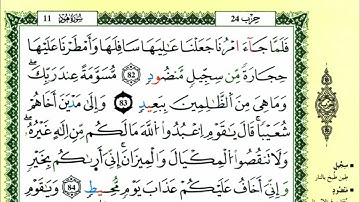 حزب 24 سورة هود 11
فَلَمَّا جَآءَ امْرُنَا جَعَلْنَا عَٰلِيَهَا سَافِلَهَا وَأَمْطَرْنَا عَلَيْهَا
حِجَارَةً مِّن سِجِّيلٍ مَّنضُودٍ 82 مُّسَوَّمَةً عِندَ رَبِّكَ
وَمَا هِيَ مِنَ اَ۬لظَّٰلِمِينَ بِبَعِيدٍ 83 وَإِلَىٰ مَدْيَنَ أَخَاهُمْ
شُعَيْباً قَالَ يَٰقَوْمِ اِ۟عْبُدُواْ اُ۬للَّهَ مَا لَكُم مِّنِ اِلَٰهٍ غَيْرُهُۥ
وَلَا تَنقُصُواْ اُ۬لْمِكْيَالَ وَالْمِيزَانَ إِنِّيَ أَر۪ىٰكُم بِخَيْرٍ
وَإِنِّيَ أَخَافُ عَلَيْكُمْ عَذَابَ يَوْمٍ مُّحِيطٍ 84 وَيَٰقَوْمِ
سِجِّيلٍ
طين طبخ بالنار
مَنضُودٍ